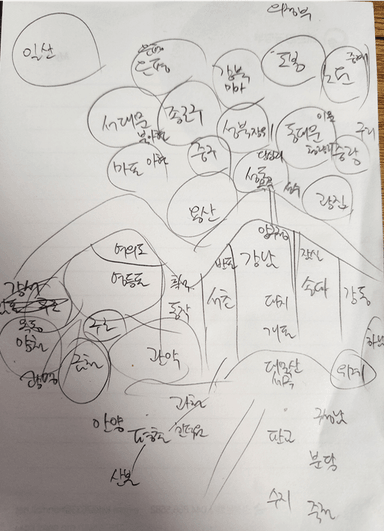 의정부
일산
은평
은평
강북
미아
도봉
중계
노원
서대문
북아현
종로구
성북
동대문
이문
구리
중랑
마포 아현
중구
왕십리
성동
광진
용산
여의도
영등포
흑석
동작
반포
서초
압구정
강남
대치
개포
잠실
송파
강동
하남
강서
목동
양천
구로
금천
광명
관악
대모산
세곡
위례
과천
안양
평촌
인덕원
산본
판교
구성남
분당
수지
죽전